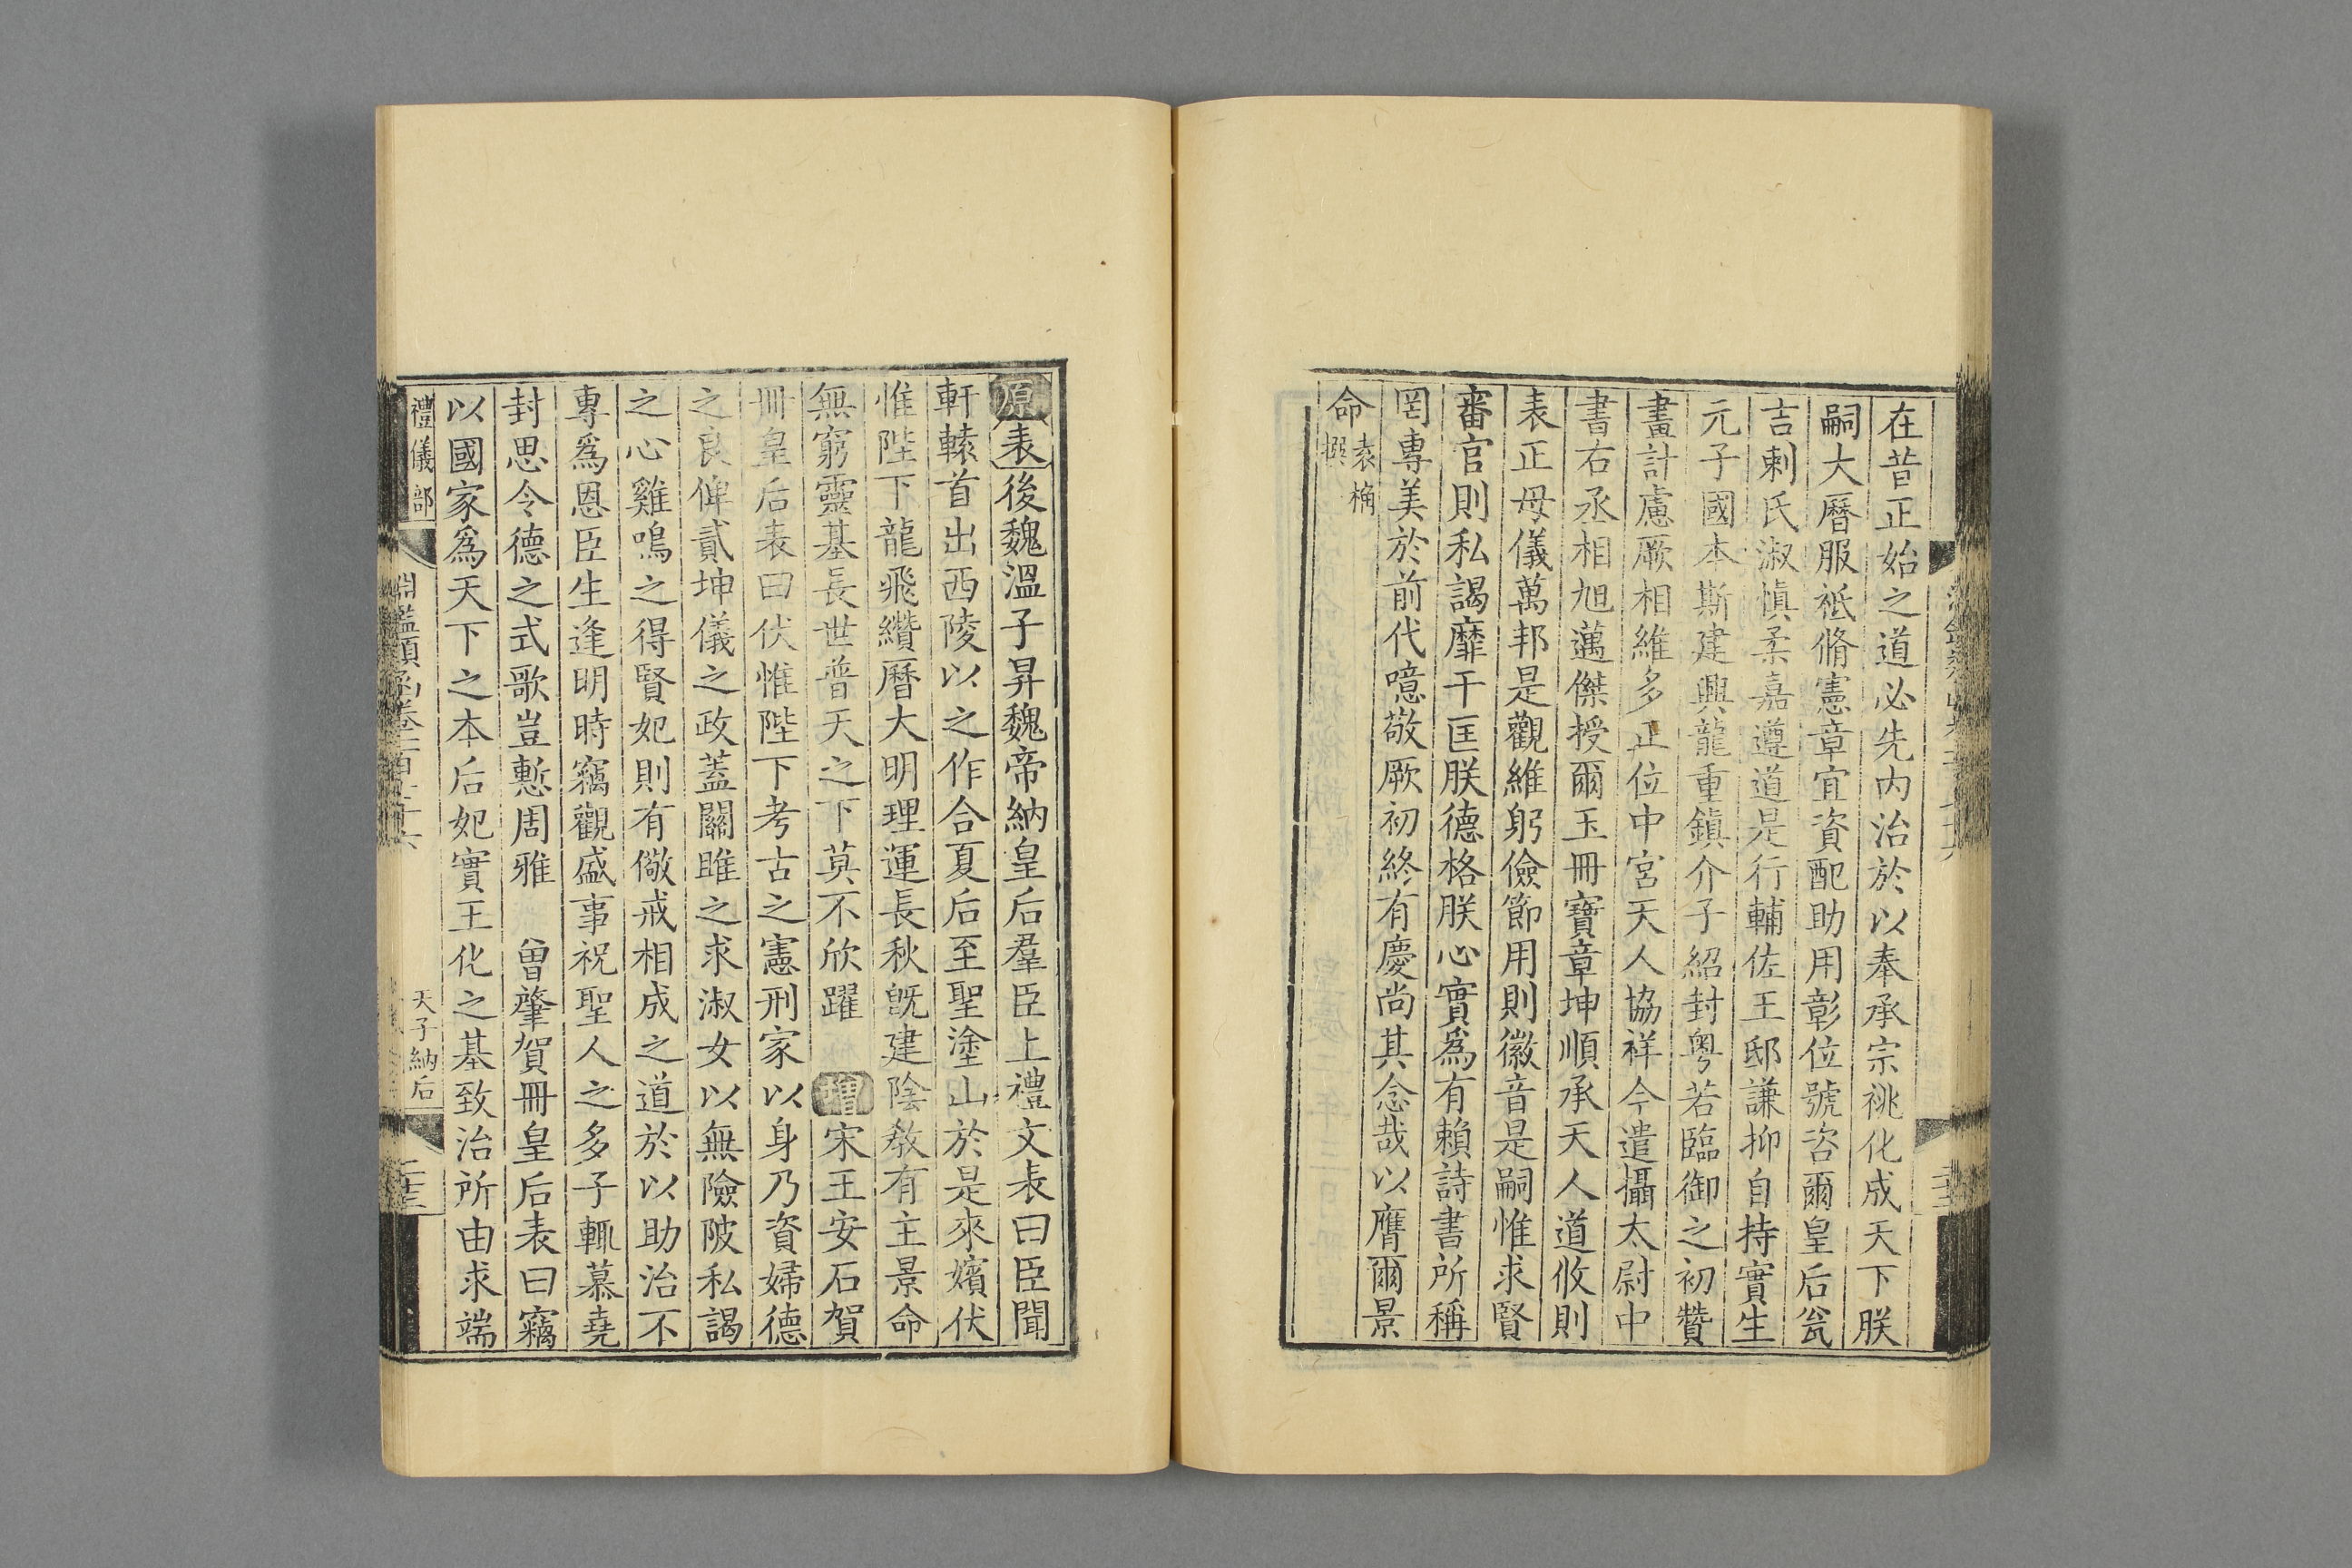 在昔正始之道必先内治於以奉承宗祧化成天下朕
嗣大曆服祗脩憲章宜資配助用彰位號咨爾皇后瓮
吉剌氏淑慎柔嘉遵道是行輔佐王邸謙抑自持實生
元子國本斯建興龍重鎮介子紹封粤若臨御之初贊
畫計慮厥相維多正位中宮天人協祥今遣攝太尉中
書右丞相旭邁傑授爾玉冊寶章坤順承天人道攸則
表正母儀萬邦是觀維躬儉節用則徽音是嗣惟求賢
審官則私謁靡干匡朕德格朕心實爲有賴詩書所稱
罔專美於前代噫敬厥初終有慶尚其念哉以膺爾景
命 袁桷撰
原表後魏溫子昇魏帝納皇后羣臣上禮文表曰臣聞
軒轅首出西陵以之作合夏后至聖塗山於是來嬪伏
惟陛下龍飛纘曆大明理運長秋旣建陰教有主景命
無窮靈基長世普天之下莫不欣躍 增宋王安石賀
冊皇后表曰伏惟陛下考古之憲刑家以身乃資婦德
之良俾貳坤儀之政蓋關雎之求淑女以無險陂私謁
之心雞鳴之得賢妃則有儆戒相成之道於以助治不
專爲恩臣生逢明時竊觀盛事祝聖人之多子輒慕堯
封思令德之式歌豈慙周雅 曾肇賀冊皇后表曰竊
以國家爲天下之本后妃實王化之基致治所由求端
禮儀部
淵鑑類函卷一百五十六
天子納后
二十三